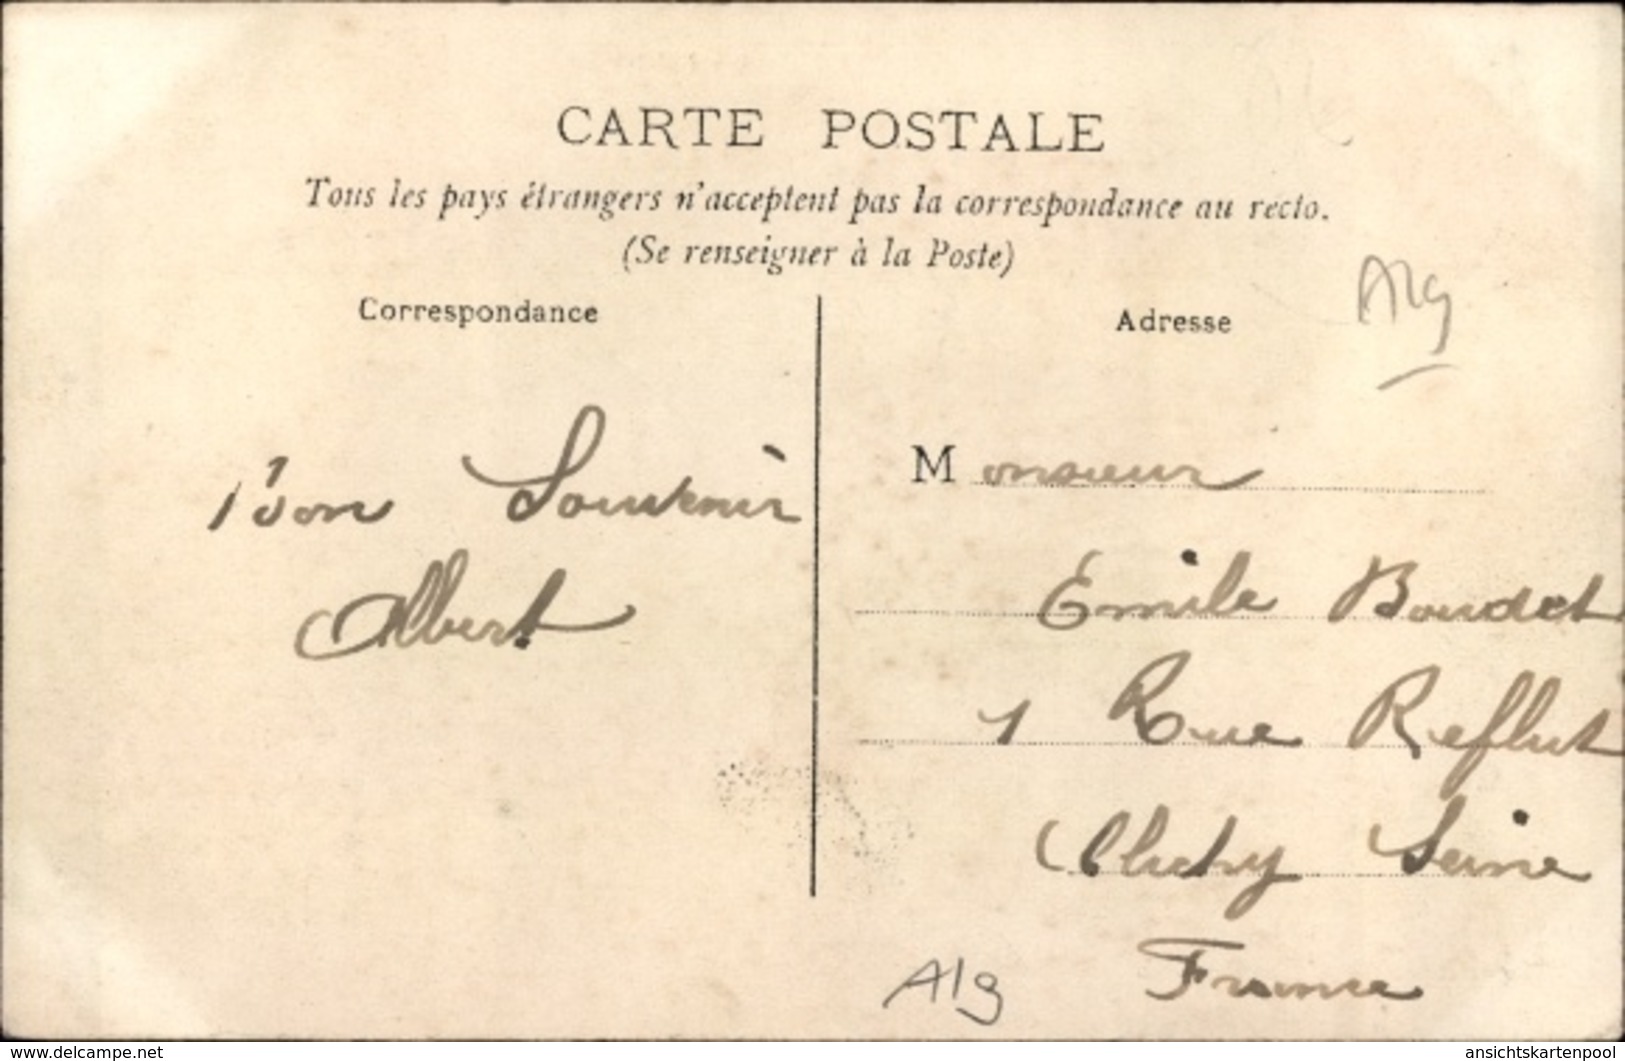 CARTE POSTALE
Tous les pays étrangers n'acceptent pas la correspondance au recto.
(Se renseigner à la Poste)
Correspondance
Adresse
Alg
Bon Souvenir
Albert
Monsieur
Emile Boudet
1 Rue Reflut
Clichy Seine
France
Alg
www.delcampe.net
ansichtskartenpool